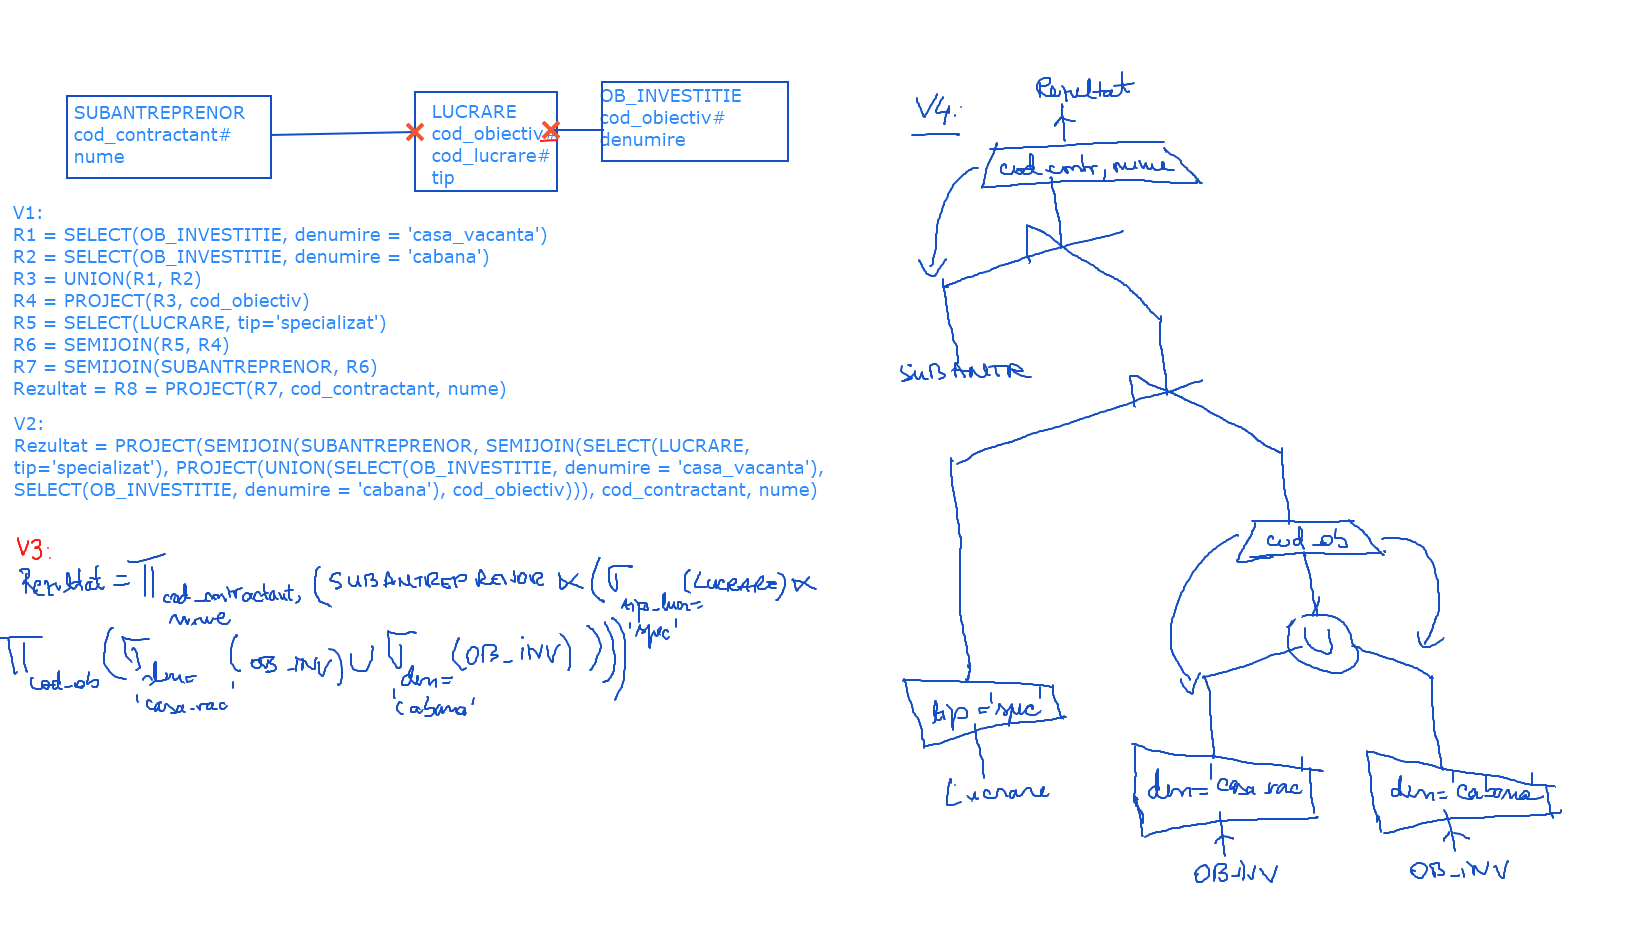 SUBANTREPRENOR
cod_contractant#
nume
LUCRARE
cod_obiectiv#
cod_lucrare#
tip
OB_INVESTITIE
cod_obiectiv#
denumire
V1:
R1 = SELECT(OB_INVESTITIE, denumire = 'casa_vacanta')
R2 = SELECT(OB_INVESTITIE, denumire = 'cabana')
R3 = UNION(R1, R2)
R4 = PROJECT(R3, cod_obiectiv)
R5 = SELECT(LUCRARE, tip='specializat')
R6 = SEMIJOIN(R5, R4)
R7 = SEMIJOIN(SUBANTREPRENOR, R6)
Rezultat = R8 = PROJECT(R7, cod_contractant, nume)
V2:
Rezultat = PROJECT(SEMIJOIN(SUBANTREPRENOR, SEMIJOIN(SELECT(LUCRARE,
tip='specializat'), PROJECT(UNION(SELECT(OB_INVESTITIE, denumire = 'casa_vacanta'),
SELECT(OB_INVESTITIE, denumire = 'cabana'), cod_obiectiv))), cod_contractant, nume)
V3:
Rezultat = Π (SUBANTREPRENOR ⋉ (σ (LUCRARE) ⋉
cod_contractant,
nume
'spec'
Π (σ (OB_INV) ∪ σ (OB_INV))))
cod_ob den= den=
'casa_vac' 'cabana'
V4:
Rezultat
cod_contr, nume
SUBANTR
cod_ob
U
tip='spec'
Lucrare
den='casa_vac'
OB_INV
den='cabana'
OB_INV